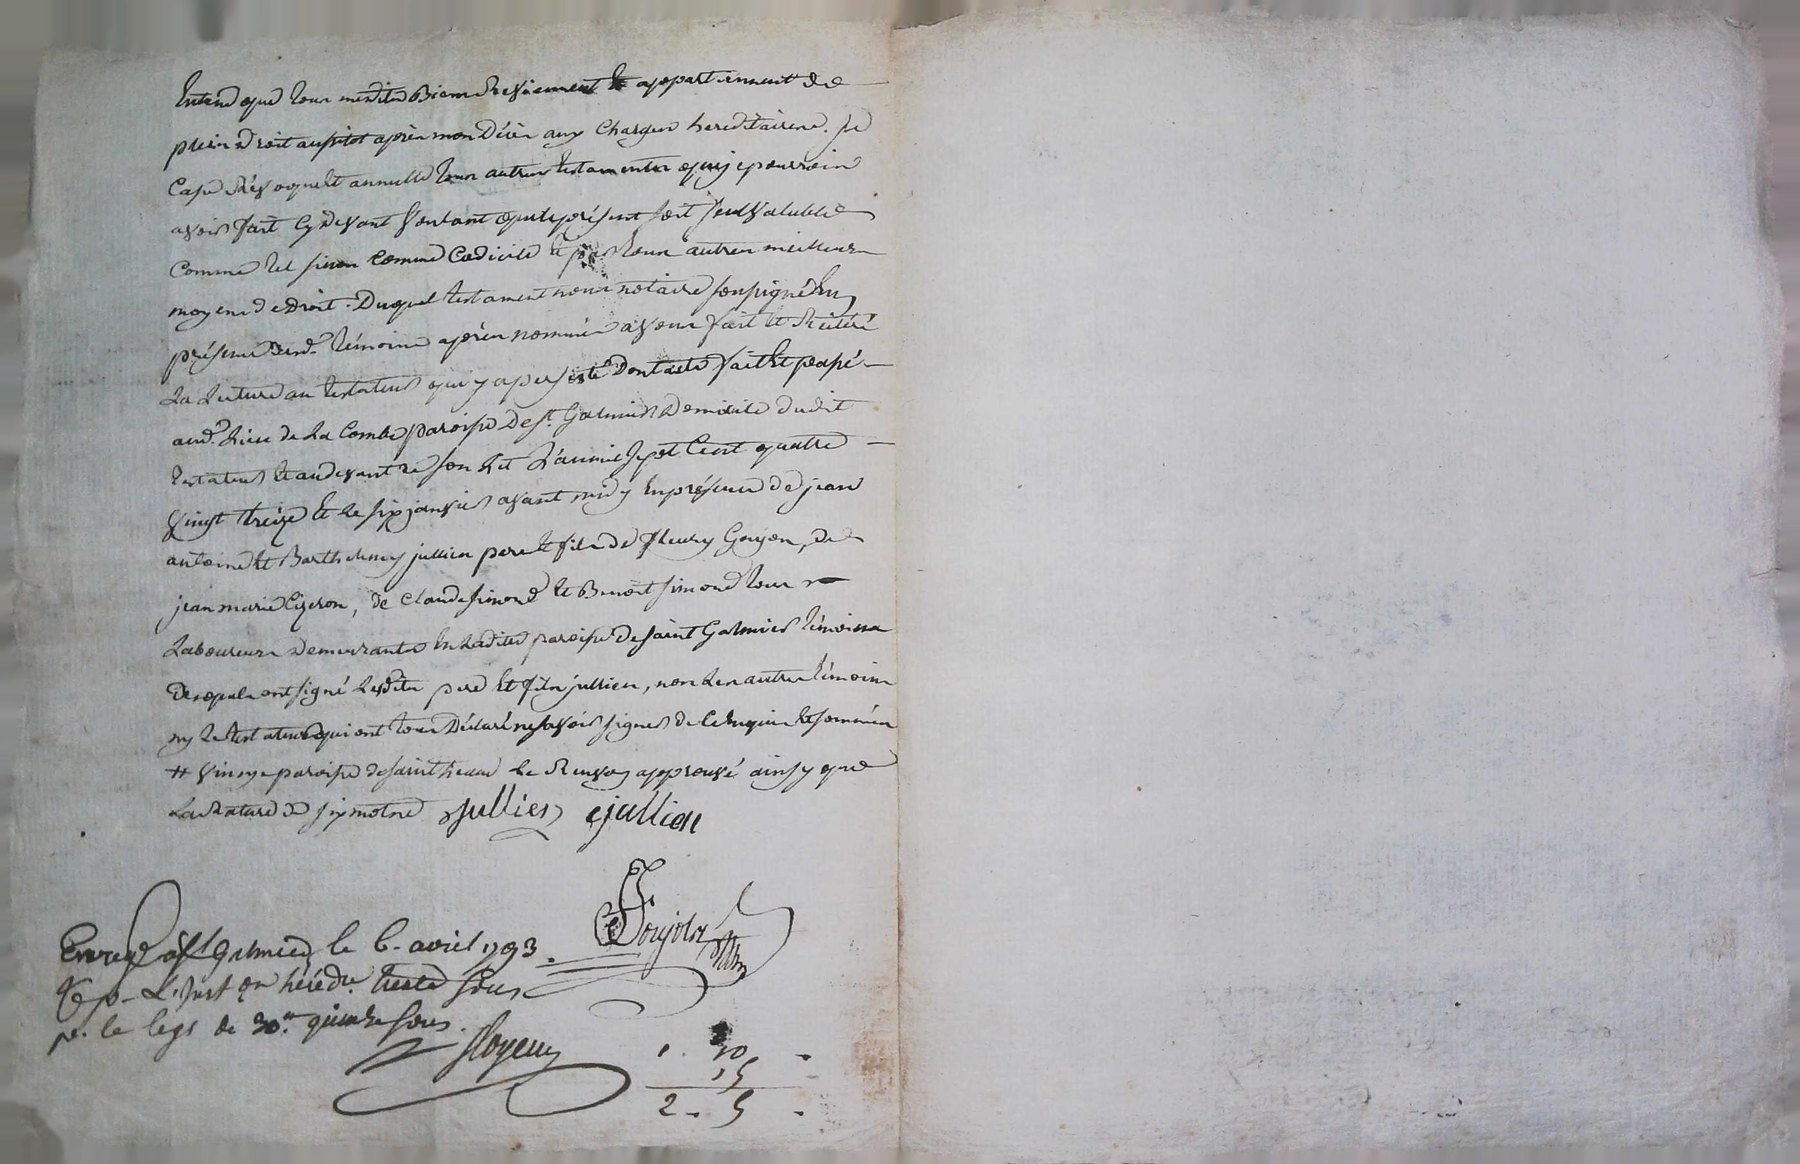 Entend que tous mesdits Biens reviennent et appartiennent de
plein droit aussitot après mon Décès aux charges hereditaires. Je
Casse Révoque et annulle tous autres testaments que je pourrois
avoir fait cy devant voulant que le présent soit seul valable
comme tel sinon comme Codicile et par tous autres meilleurs
moyens de droit. Duquel testament nous notaire soussigné En
présence desd. témoins après nommés avons fait et Réitéré
La Lecture au testateur qui y a persisté Dont acte fait et passé
aud. Lieu de La Combe paroisse de St. Galmier Domicile dudit
testateur et au devant de son lit L'année sept Cent quatre
vingt treize et le six janvier avant midy En présence de jean
antoine et Barthelemy jullien pere et fils de fleury Goujon, de
jean marie Cizeron, de Claude simond et Benoit simond tous
Laboureurs Demeurants En Ladite paroisse de saint Galmier témoins
desquels ont signé Lesdits pere et fils jullien, non les autres témoins
ny le testateur qui ont tous Déclaré ne savoir signer de ce Enquis et sommés
# paroisse de saint heand le Renvoy approuvé ainsy que
La Rature de six mots jullien jullien
Goujon
Enregé à St Galmier le 6. avril 1793.
p. L'inst on héréd. trente sous
p. le legs de 30.# quinze sous.
1. 10 .
15
2. 5 .